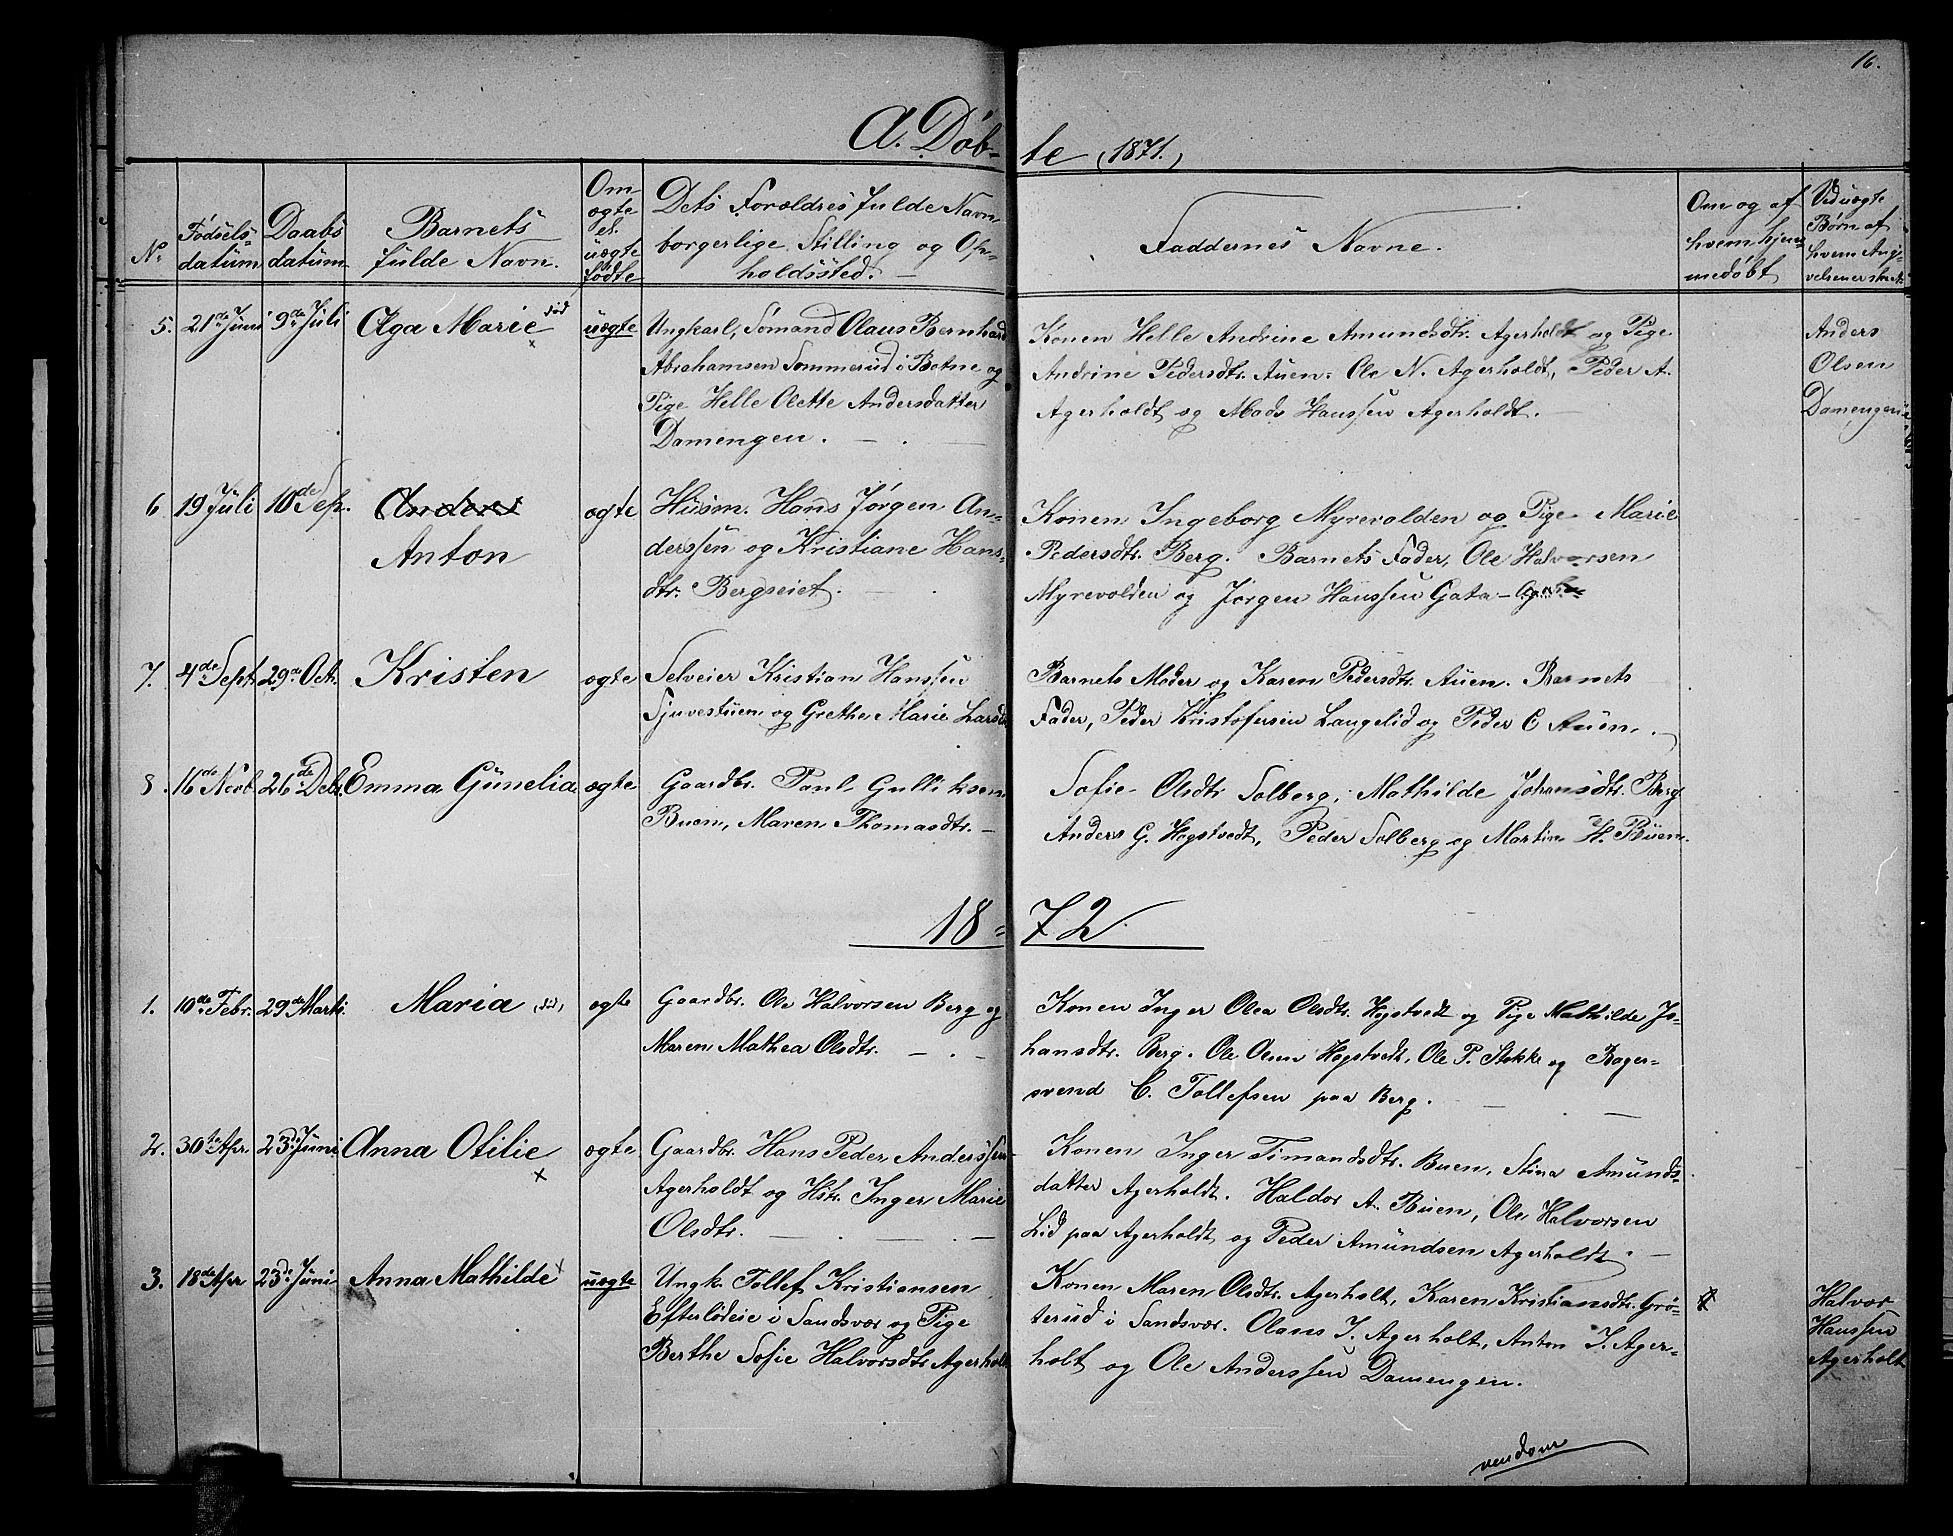 16.
A. Døb-
te (1871.)
No
Fødsels-
datum
Daabs
datum
Barnets
fulde Navn.
Om
ægte
el.
uægte
fødte
Dets Forældres fulde Navn
borgerlige Stilling og Op-
holdssted. —
Faddernes Navne.
Om og af
hvem hjem-
medøbt
Ved uægte
Børn af
hvem Ang-
velsen er skeet
5. 21de Juni 9de Juli Olga Marie død x uægte
Ungkarl, Sømand Olaus Bernhard
Abrahamsen Sommerud i Botne og
Pige Helle Olette Andersdatter
Damengen. — . —
Konen Helle Andrine Amundsdtr. Agerholdt og Pige
Andrine Pedersdtr. Auen. Ole N. Agerholdt, Peder A.
Agerholdt og Mads Hanssen Agerholdt. —
Anders
Olsen
Damengen
6. 19 Juli 10de Sep. Anders
Anton
ægte
Husm. Hans Jørgen An-
derssen og Kristiane Hans-
dtr. Bergseiet. — .
Konen Ingeborg Myrevolden og Pige Marie
Pedersdtr. Berg. Barnets Fader, Ole Halvorsen
Myrevolden og Jørgen Hanssen Gata-
7. 4de Sept. 29de Oct. Kristen ægte
Selveier Kristian Hanssen
Sjuvestuen og Grethe Marie Larsdtr
Barnets Moder og Karen Pedersdtr. Auen. Barnets
Fader, Peder Kristofersen Langelid og Peder C Auen.
8. 16de Novb. 26de Debr. Emma Gunelia ægte
Gaardbr. Paul Gulliksen
Buen, Maren Thomasdtr. —
Sofie Olsdtr Solberg, Mathilde Johansdtr. Berg
Anders G. Hogstvedt, Peder Solberg og Martin H. Buen.
18=72.
1. 10de Febr. 29de Marts. Maria (død) ægte
Gaardbr. Ole Halvorsen Berg og
Maren Mathea Olsdtr. — . —
Konen Inger Olea Olsdtr. Hogstvedt og Pige Mathilde Jo-
hansdtr. Berg. Ole Olsen Hogstvedt, Ole P. Stokke og Bager-
svend C. Tollefsen paa Berg. —
2. 30te Apr. 23de Juni Anna Otilie x ægte
Gaardbr. Hans Peder Anderssen
Agerholdt og Hstr. Inger Marie
Olsdtr. — . —
Konen Inger Timandsdtr. Buen, Stina Amunds-
datter Agerholdt. Haldor A. Buen, Ole Halvorsen
Lid paa Agerholdt, og Peder Amundsen Agerholdt. —
3. 18de Apr 23de Juni Anna Mathilde x uægte
Ungk. Tollef Kristiansen
Efterlødeie i Sandsvær og Pige
Berthe Sofie Halvorsdtr. Agerholt
Konen Maren Olsdtr. Agerholt, Karen Kristiansdtr. Grø-
terud i Sandsvær. Olaus J. Agerholt, Anton J. Ager-
holt og Ole Anderssen Damengen.
Halvor
Hanssen
Agerholt
vend om